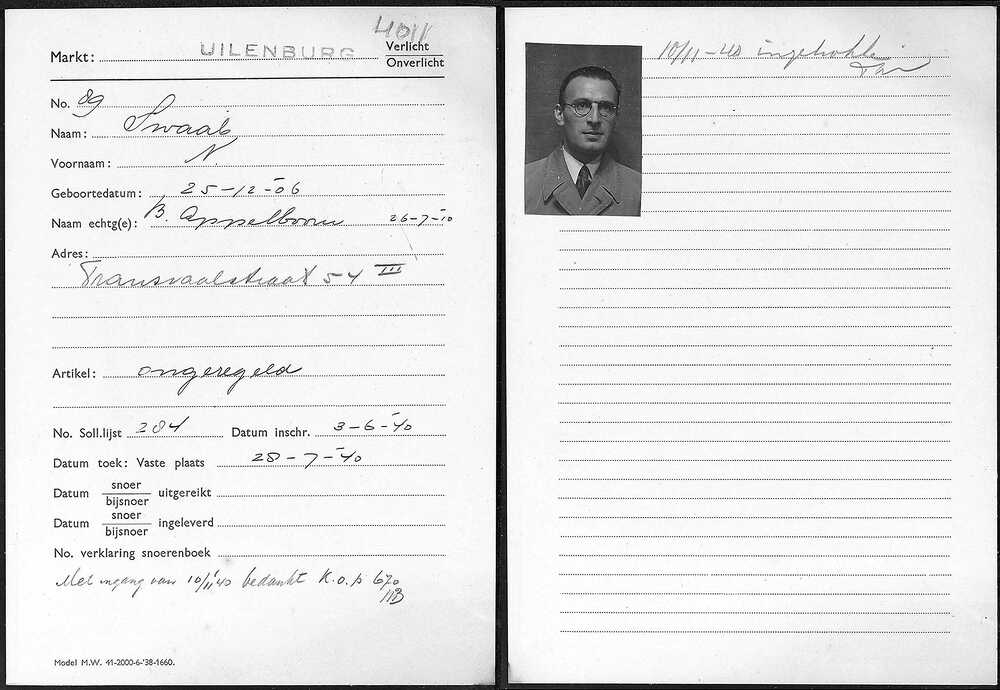 4011
Markt: UILENBURG Verlicht
Onverlicht
No. 89
Naam: Swaab
Voornaam: N.
Geboortedatum: 25-12-06
Naam echtg(e): B. Appelboom 26-7-10
Adres:
Transvaalstraat 54 III
Artikel: ongeregeld
No. Soll.lijst 284 Datum inschr. 3-6-40
Datum toek: Vaste plaats 28-7-40
Datum snoer/bijsnoer uitgereikt
Datum snoer/bijsnoer ingeleverd
No. verklaring snoerenboek
Met ingang van 10/11 '40 bedankt K.o.p 670
Model M.W. 41-2000-6-'38-1660.
10/11-40